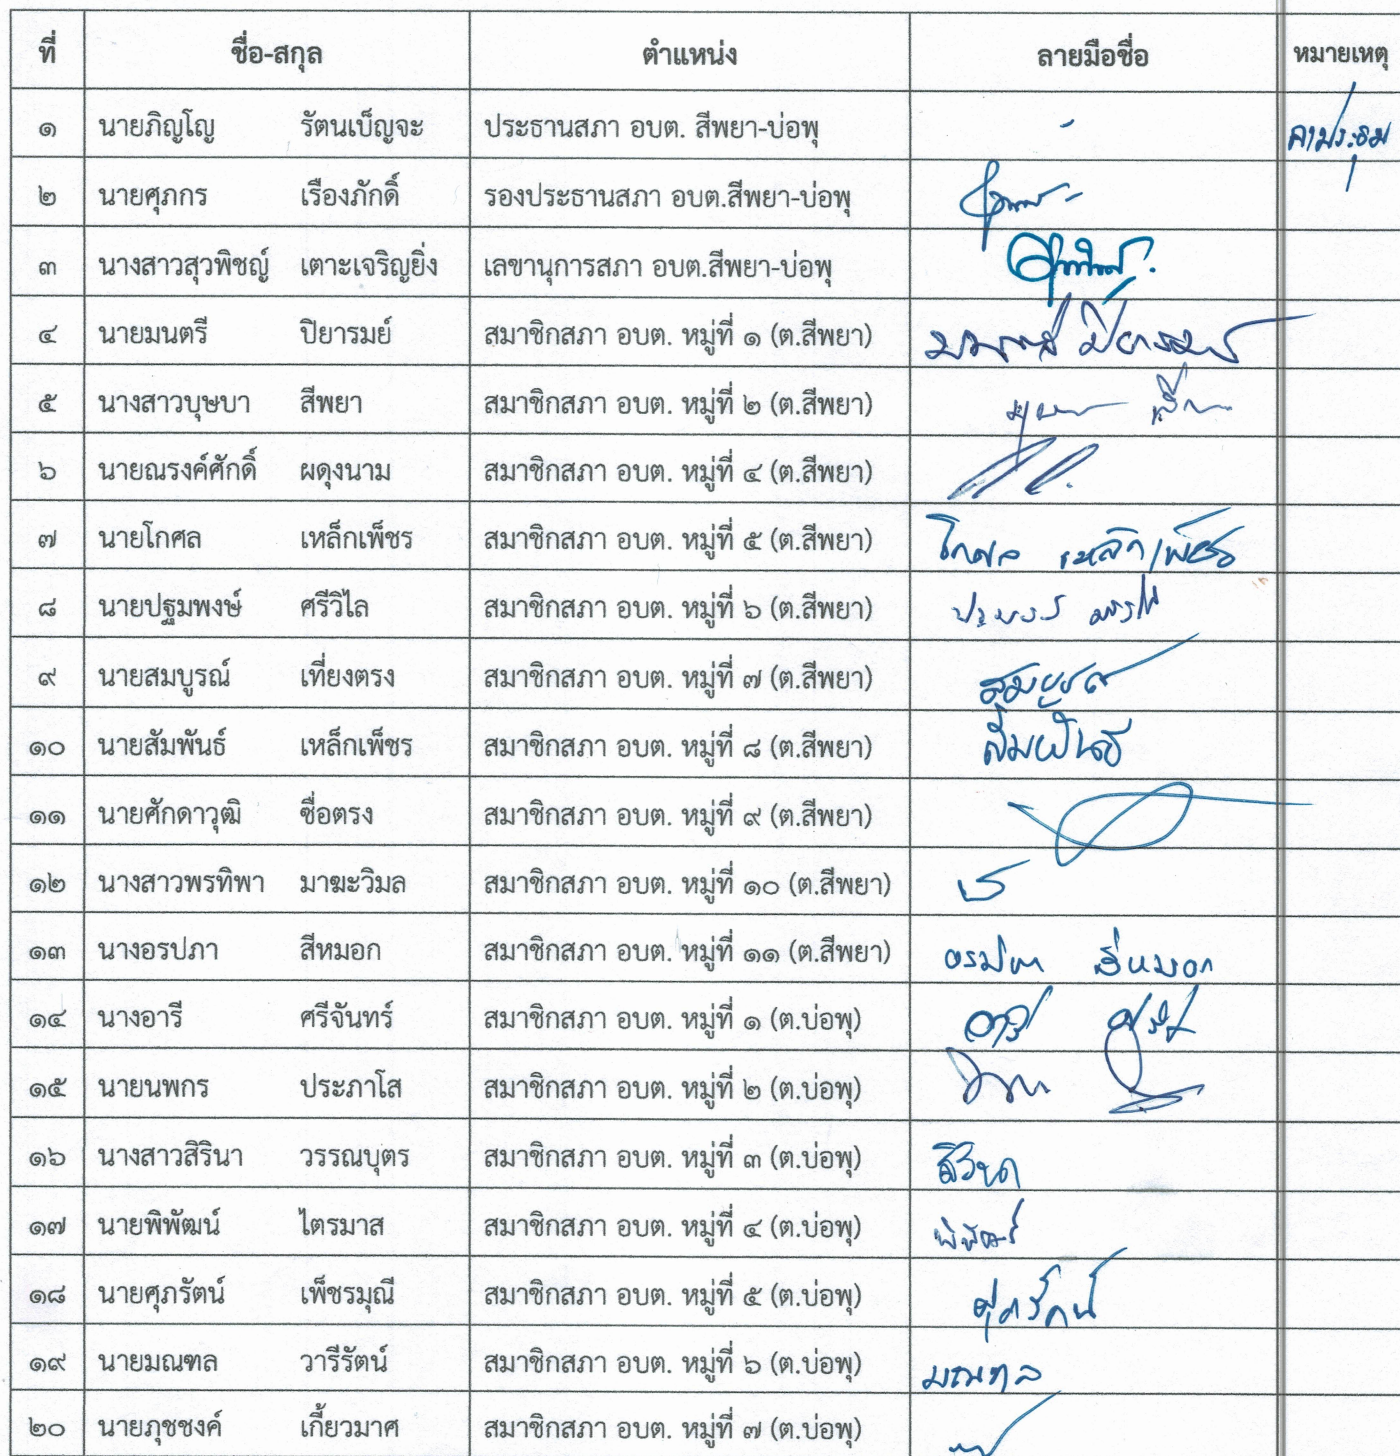 ที่ ชื่อ-สกุล ตำแหน่ง ลายมือชื่อ หมายเหตุ
๑ นายภิญโญ รัตนเบ็ญจะ ประธานสภา อบต. สีพยา-บ่อพุ ลาประชุม
๒ นายศุภกร เรืองภักดิ์ รองประธานสภา อบต.สีพยา-บ่อพุ
๓ นางสาวสุวพิชญ์ เตาะเจริญยิ่ง เลขานุการสภา อบต.สีพยา-บ่อพุ
๔ นายมนตรี ปิยารมย์ สมาชิกสภา อบต. หมู่ที่ ๑ (ต.สีพยา) มนตรี ปิยารมย์
๕ นางสาวบุษบา สีพยา สมาชิกสภา อบต. หมู่ที่ ๒ (ต.สีพยา)
๖ นายณรงค์ศักดิ์ ผดุงนาม สมาชิกสภา อบต. หมู่ที่ ๔ (ต.สีพยา)
๗ นายโกศล เหล็กเพ็ชร สมาชิกสภา อบต. หมู่ที่ ๕ (ต.สีพยา) โกศล เหล็กเพ็ชร
๘ นายปฐมพงษ์ ศรีวิไล สมาชิกสภา อบต. หมู่ที่ ๖ (ต.สีพยา)
๙ นายสมบูรณ์ เที่ยงตรง สมาชิกสภา อบต. หมู่ที่ ๗ (ต.สีพยา) สมบูรณ์
๑๐ นายสัมพันธ์ เหล็กเพ็ชร สมาชิกสภา อบต. หมู่ที่ ๘ (ต.สีพยา) สัมพันธ์
๑๑ นายศักดาวุฒิ ซื่อตรง สมาชิกสภา อบต. หมู่ที่ ๙ (ต.สีพยา)
๑๒ นางสาวพรทิพา มาฆะวิมล สมาชิกสภา อบต. หมู่ที่ ๑๐ (ต.สีพยา)
๑๓ นางอรปภา สีหมอก สมาชิกสภา อบต. หมู่ที่ ๑๑ (ต.สีพยา) อรปภา สีหมอก
๑๔ นางอารี ศรีจันทร์ สมาชิกสภา อบต. หมู่ที่ ๑ (ต.บ่อพุ) อารี
๑๕ นายนพกร ประภาโส สมาชิกสภา อบต. หมู่ที่ ๒ (ต.บ่อพุ)
๑๖ นางสาวสิรินา วรรณบุตร สมาชิกสภา อบต. หมู่ที่ ๓ (ต.บ่อพุ) สิรินา
๑๗ นายพิพัฒน์ ไตรมาส สมาชิกสภา อบต. หมู่ที่ ๔ (ต.บ่อพุ) พิพัฒน์
๑๘ นายศุภรัตน์ เพ็ชรมุณี สมาชิกสภา อบต. หมู่ที่ ๕ (ต.บ่อพุ) ศุภรัตน์
๑๙ นายมณฑล วารีรัตน์ สมาชิกสภา อบต. หมู่ที่ ๖ (ต.บ่อพุ) มณฑล
๒๐ นายภุชชงค์ เกี้ยวมาศ สมาชิกสภา อบต. หมู่ที่ ๗ (ต.บ่อพุ)